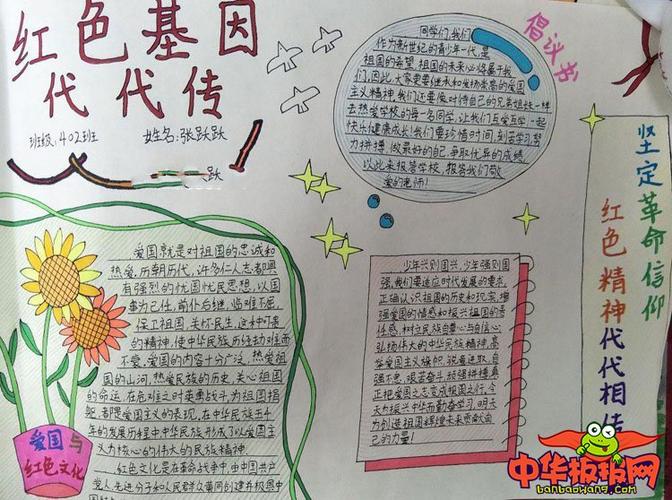 红色基因
代代传
班级：402班 姓名：张跃跃
跃
倡议书
同学们，我们
作为新世纪的青少年一代，是
祖国的希望，祖国的未来必将属于我
们，因此，大家更要继承和发扬崇高的爱国
主义精神，我们还要像对待自己的兄弟姐妹一样
去热爱学校的每一名同学，让我们与爱互学一起
快乐健康成长！我们要珍惜时间，刻苦学习，努
力拼搏，做最好的自己，争取优异的成绩，
以此来报答学校，报答我们敬
爱的老师！
坚定革命信仰
红色精神代代相传
爱国就是对祖国的忠诚和
热爱，历朝历代，许多仁人志士都具
有强烈的忧国忧民思想，以国
事为己任，前仆后继，临难不屈，
保卫祖国，关怀民生，这种可贵
的精神，使中华民族历经劫难而
不衰，爱国的内容十分广泛，热爱祖
国的山河，热爱民族的历史，关心祖国
的命运，在危难之时英勇战斗，为祖国捐
躯，都是爱国主义的表现，在中华民族五千
年的发展历程中，中华民族形成了以爱国主
义为核心的伟大的民族精神。
红色文化是在革命战争中，由中国共产
党人，先进分子和人民群众共同创建并极具中
爱国与
红色文化
少年兴则国兴，少年强则国
强，我们要适应时代发展的要求，
正确认识祖国的历史和现实，增
强爱国的情感和振兴祖国的责
任感，和对民族自尊心与自信心；
弘扬伟大的中华民族精神，高
举爱国主义旗帜，锐意进取，自
强不息，艰苦奋斗，顽强拼搏，真
正把爱国之志变成报国之行。今
天为振兴中华而勤奋学习，明天
为创造祖国辉煌未来贡献自
己的力量！
中华板报网
banbaowang.com